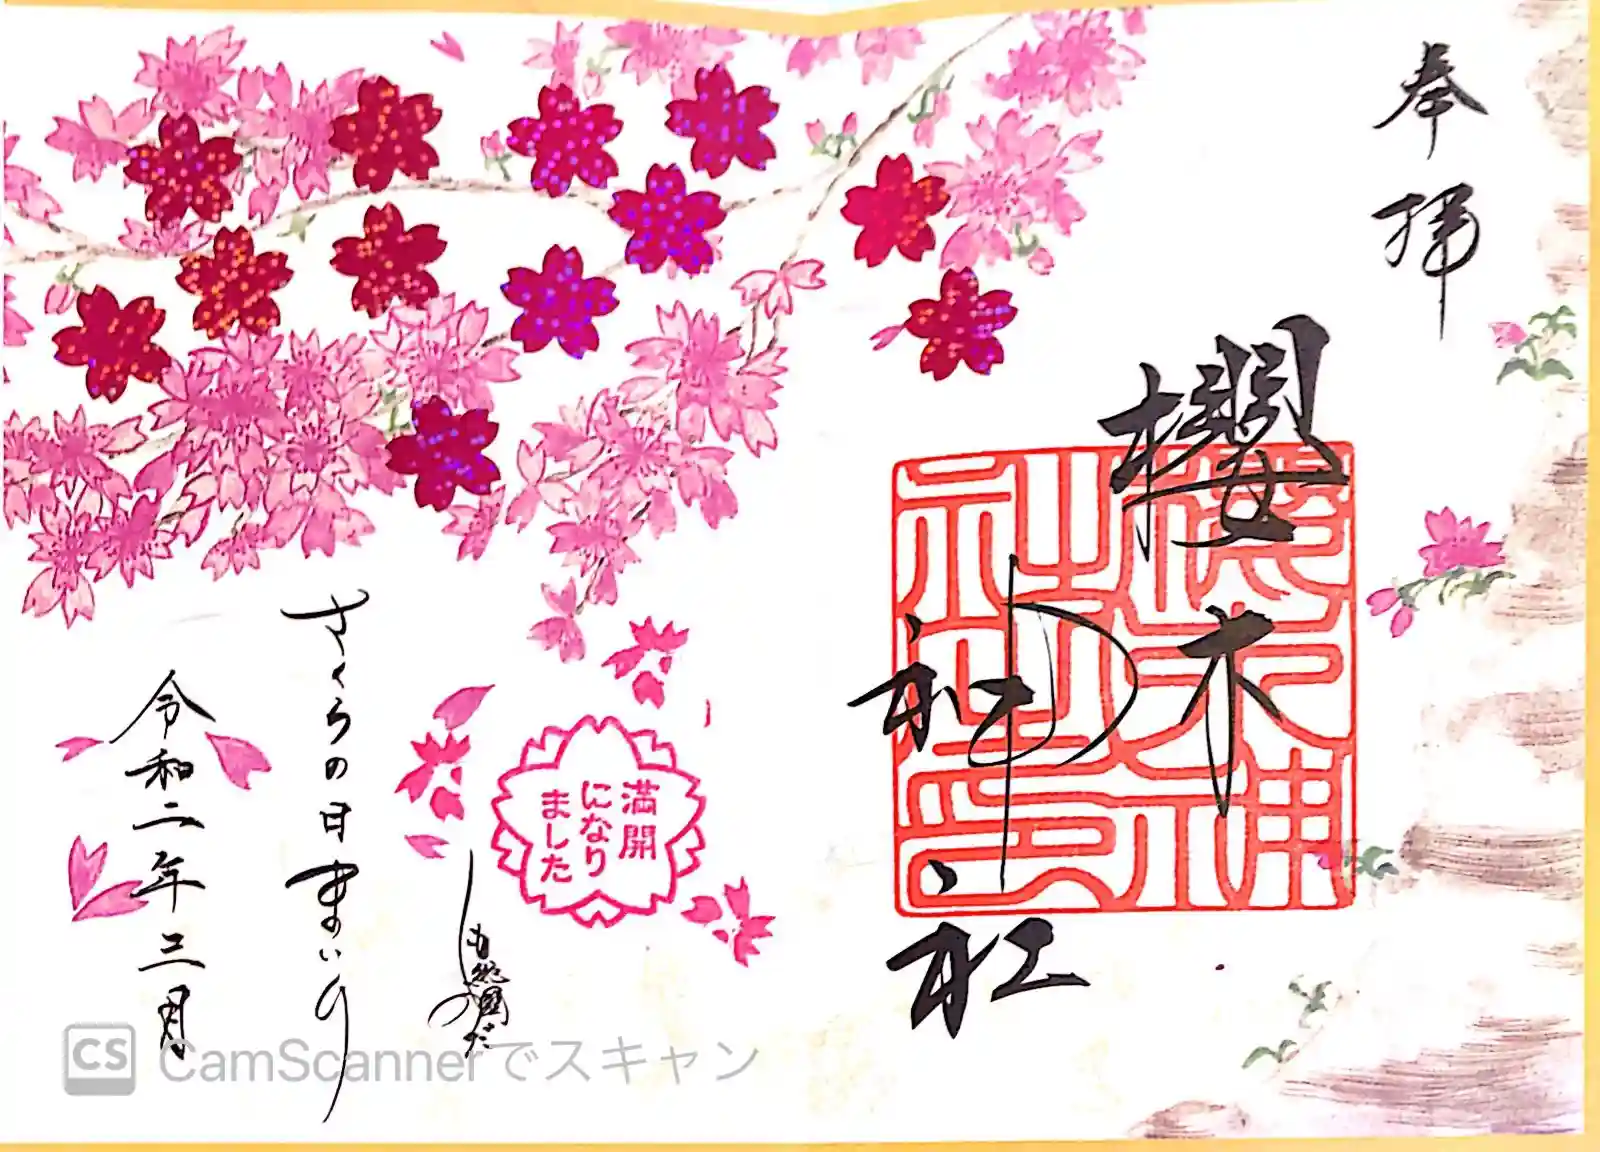 奉拝
櫻木神社
櫻木神社印
満開
になり
ました
さくらの日まいり
令和二年三月
CS CamScannerでスキャン